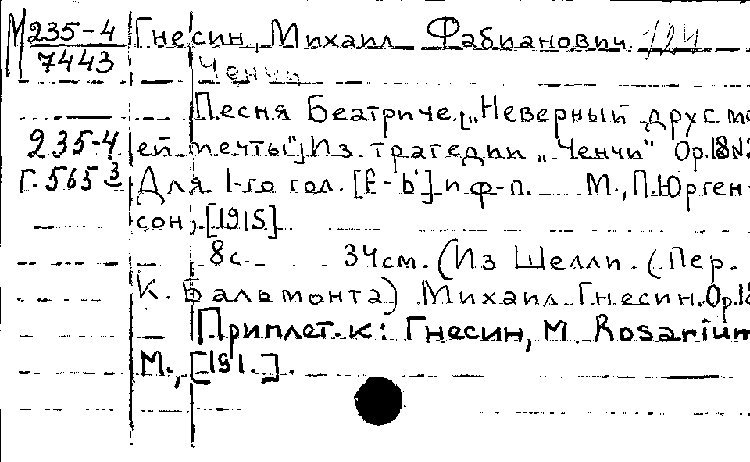 М 235-4 Гнесин, Михаил Фабианович. 124
7443 Ченчи
Песня Беатриче. [„Неверный друг мо
235-4 ей мечты"] Из трагедии „Ченчи" Ор.18 №
Г. 565 3 Для 1-го гол. [E - b'] и ф-п. М., П. Юрген-
сон, [1915]
8с 34см. (Из Шелли. (Пер.
К. Бальмонта) Михаил Гнесин. Ор.18
Приплет. к: Гнесин, М. Rosarium
М., [191.].